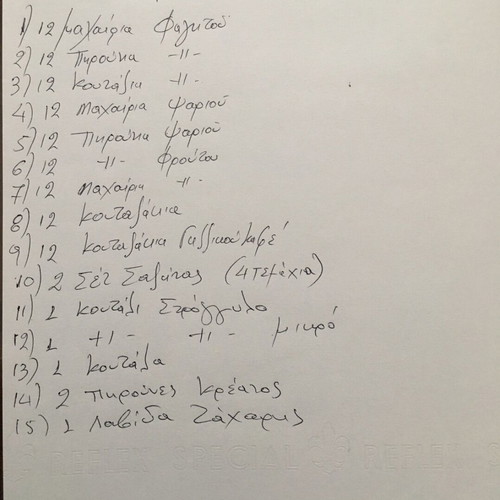 1) 12 μαχαίρια φαγητού
2) 12 Πηρούνια -||-
3) 12 κουτάλια -||-
4) 12 Μαχαίρια ψαριού
5) 12 Πηρούνια ψαριού
6) 12 -||- Φρούτου
7) 12 Μαχαίρια -||-
8) 12 κουταλάκια
9) 12 κουταλάκια Γαλλικού καφέ
10) 2 Σέτ Σαλάτας (4 τεμάχια)
11) 1 κουτάλι Στρόγγυλο
12) 1 -||- -||- μικρό
13) 1 κουτάλα
14) 2 πηρούνες κρέατος
15) 1 Λαβίδα Ζάχαρης